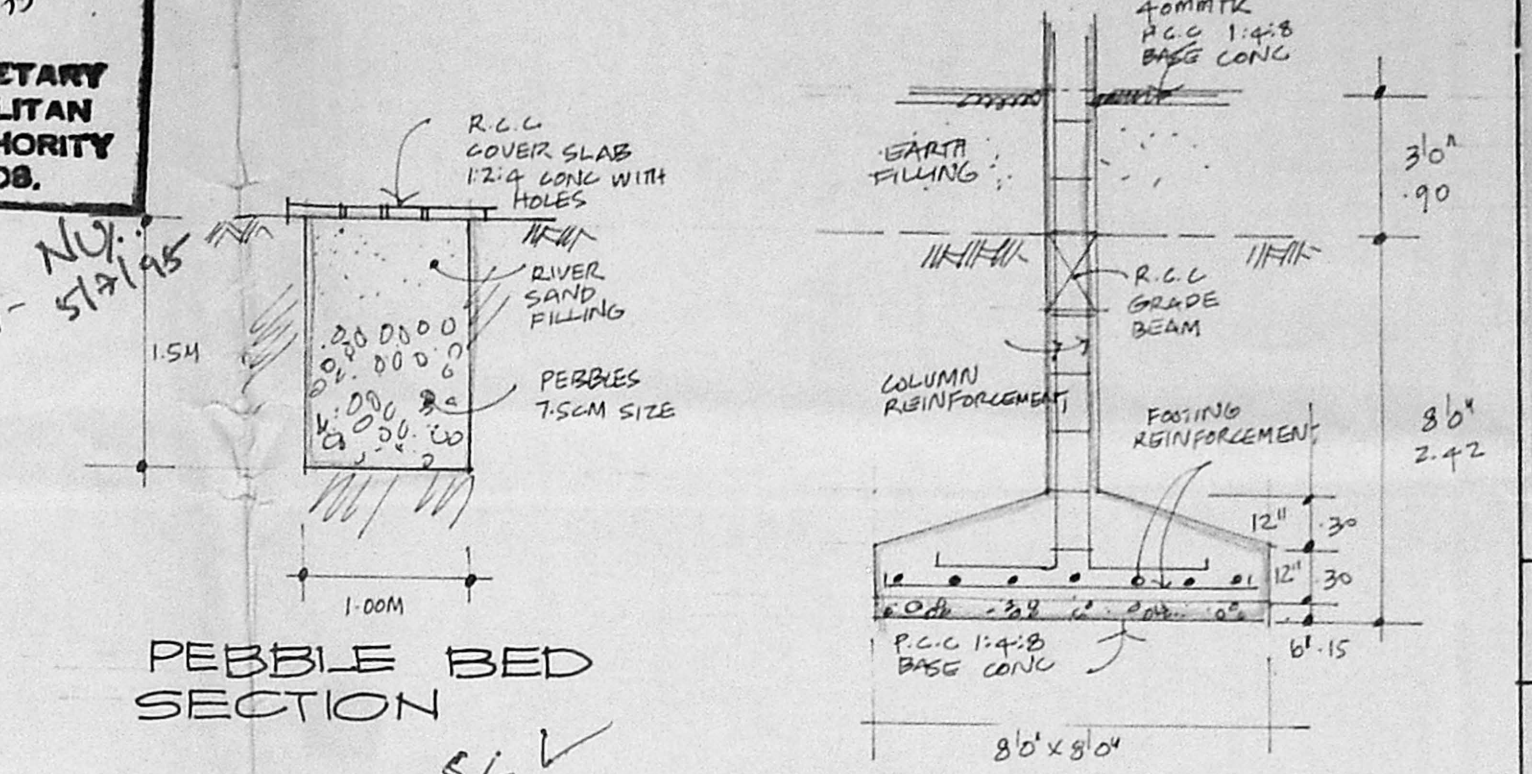 ETARY
LITAN
HORITY
08.
5/7/95
1.5M
R.C.C
COVER SLAB
1:2:4 CONC WITH
HOLES
RIVER
SAND
FILLING
PEBBLES
7.5CM SIZE
1.00M
PEBBLE BED
SECTION
40MMTK
P.C.C 1:4:8
BASE CONC
EARTH
FILLING
3'0"
.90
R.C.C
GRADE
BEAM
COLUMN
REINFORCEMENT
FOOTING
REINFORCEMENT
8'0"
2.42
12" .30
12" 30
6" .15
P.C.C 1:4:8
BASE CONC
8'0" x 8'0"